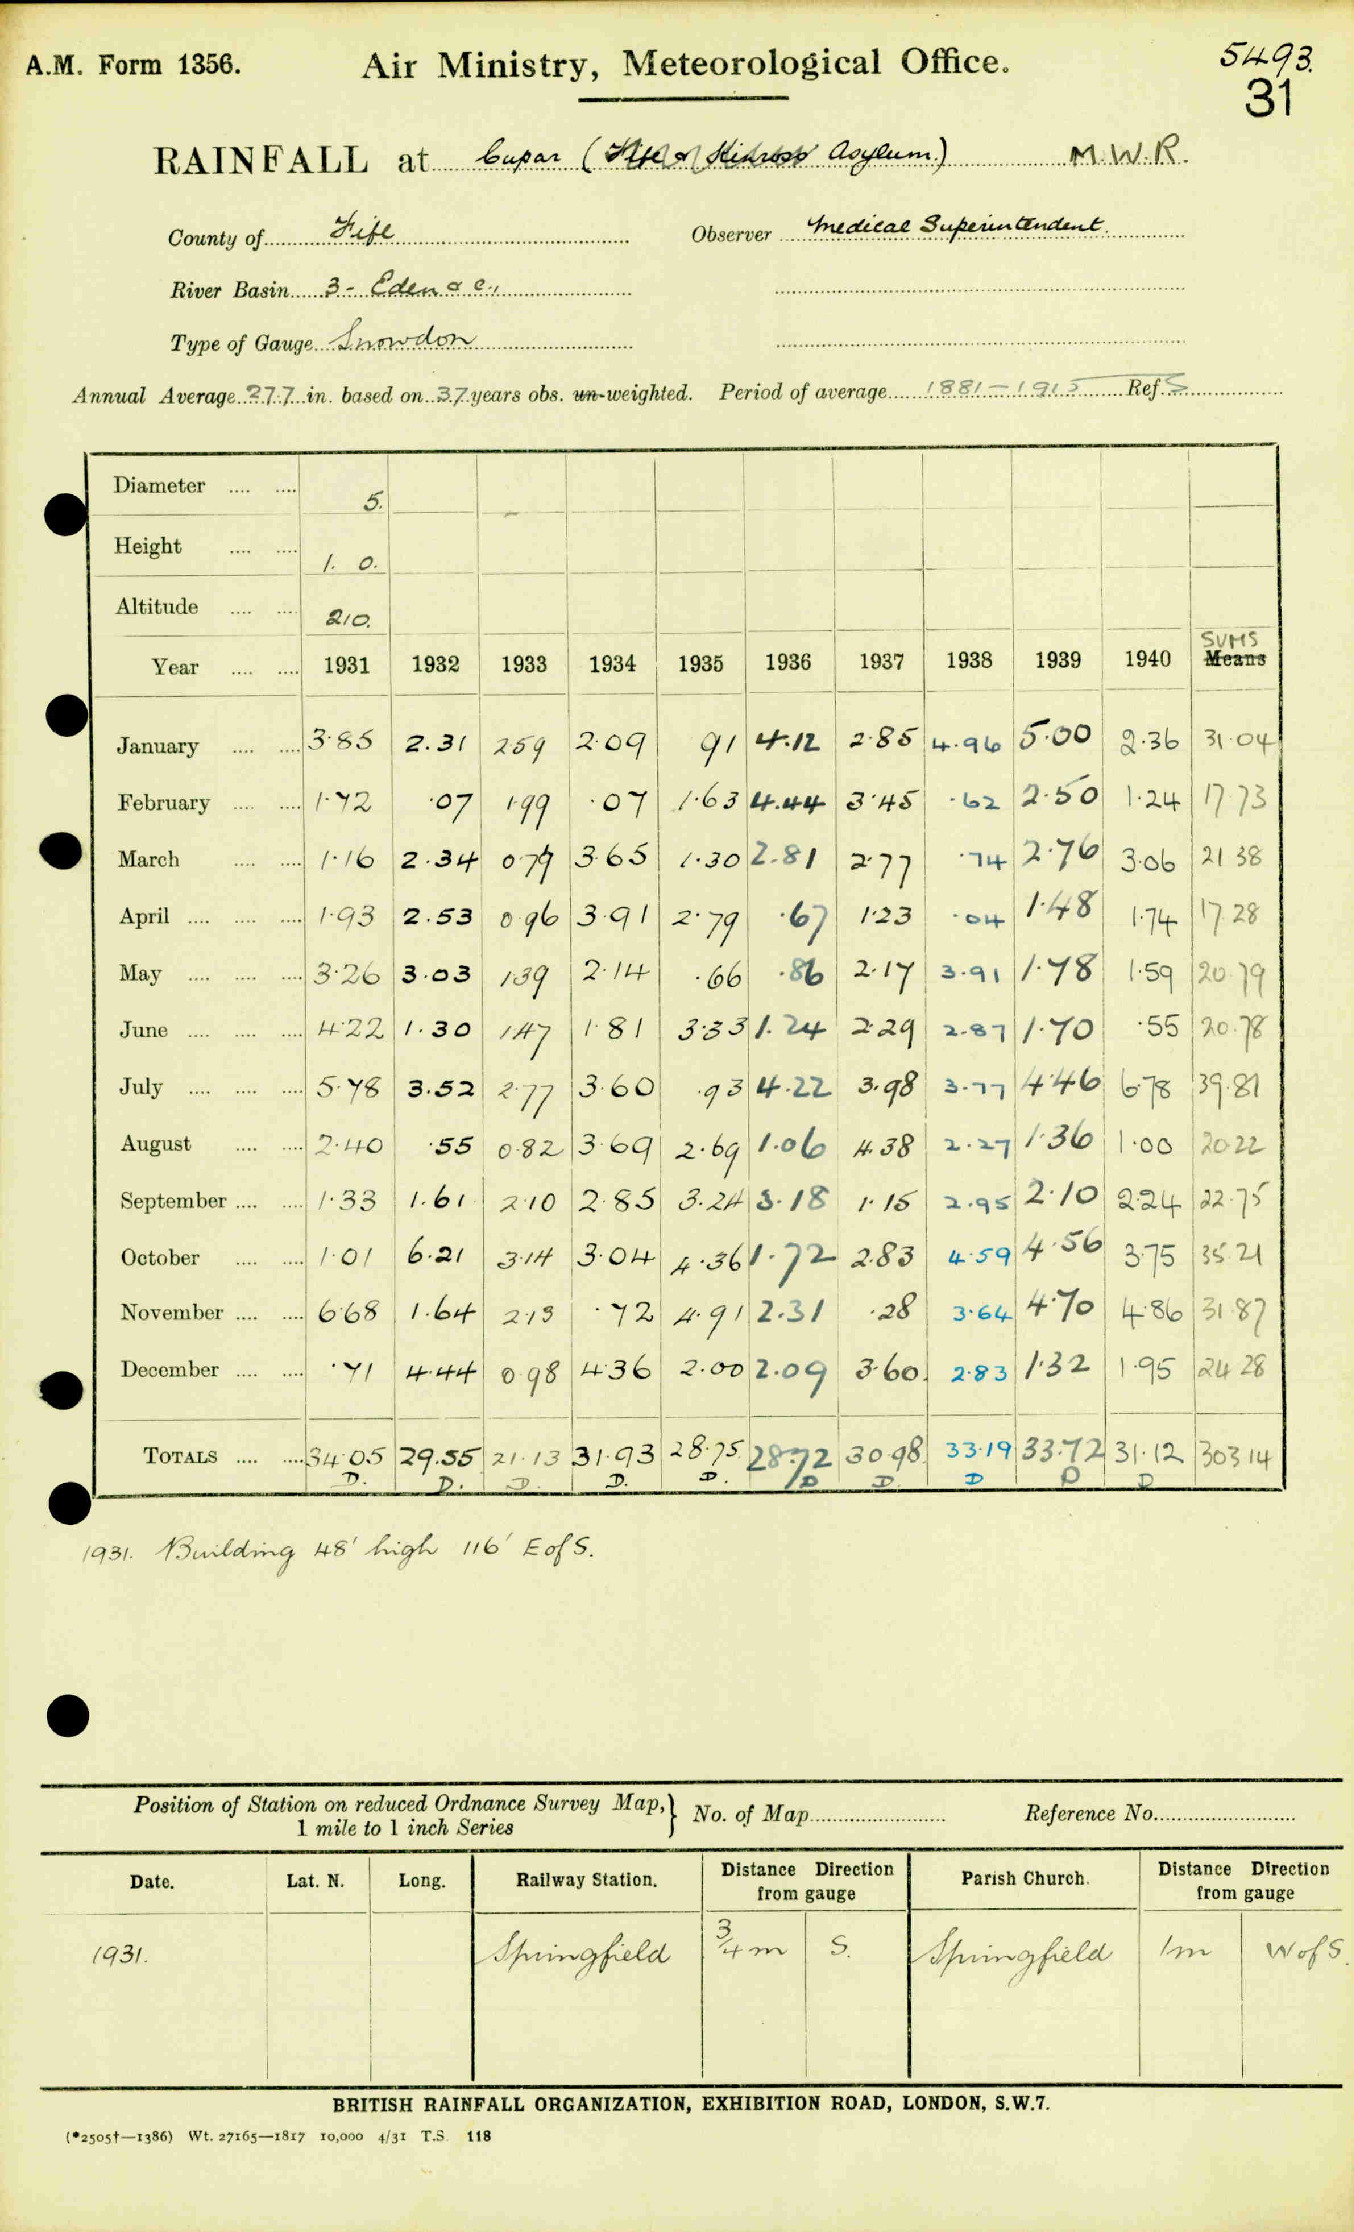 A.M. Form 1356.
Air Ministry, Meteorological Office.
5493.
31
RAINFALL at Cupar (Fife & Kinross Asylum.) M.W.R.
County of Fife
Observer Medical Superintendent.
River Basin 3 - Eden & c.,
Type of Gauge Snowdon
Annual Average 27.7 in. based on 37 years obs. un-weighted. Period of average 1881-1915 Ref. S
Diameter .... .... 5.
Height .... .... 1. 0.
Altitude .... .... 210.
SUMS
Year .... .... 1931 1932 1933 1934 1935 1936 1937 1938 1939 1940 Means
January .... .... 3.85 2.31 2.59 2.09 .91 4.12 2.85 4.96 5.00 2.36 31.04
February .... .... 1.72 .07 1.99 .07 1.63 4.44 3.45 .62 2.50 1.24 17.73
March .... .... 1.16 2.34 0.79 3.65 1.30 2.81 2.77 .74 2.76 3.06 21.38
April .... .... .... 1.93 2.53 0.96 3.91 2.79 .67 1.23 .04 1.48 1.74 17.28
May .... .... .... 3.26 3.03 1.39 2.14 .66 .86 2.17 3.91 1.78 1.59 20.79
June .... .... .... 4.22 1.30 1.47 1.81 3.33 1.24 2.29 2.87 1.70 .55 20.78
July .... .... .... 5.78 3.52 2.77 3.60 .93 4.22 3.98 3.77 4.46 6.78 39.81
August .... .... 2.40 .55 0.82 3.69 2.69 1.06 4.38 2.27 1.36 1.00 20.22
September .... .... 1.33 1.61 2.10 2.85 3.24 3.18 1.15 2.95 2.10 2.24 22.75
October .... .... 1.01 6.21 3.14 3.04 4.36 1.72 2.83 4.59 4.56 3.75 35.21
November .... .... 6.68 1.64 2.13 .72 4.91 2.31 .28 3.64 4.70 4.86 31.87
December .... .... .71 4.44 0.98 4.36 2.00 2.09 3.60 2.83 1.32 1.95 24.28
TOTALS .... .... 34.05 29.55 21.13 31.93 28.75 28.72 30.98 33.19 33.72 31.12 303.14
D. D. D. D. D. D D. D D D
1931. Building 48' high 116' E of S.
Position of Station on reduced Ordnance Survey Map, }
1 mile to 1 inch Series
No. of Map
Reference No.
Date. Lat. N. Long. Railway Station. Distance Direction from gauge Parish Church. Distance Direction from gauge
1931. Springfield 3/4 m S. Springfield 1m W of S.
BRITISH RAINFALL ORGANIZATION, EXHIBITION ROAD, LONDON, S.W.7.
(*2505†—1386) Wt. 27165—1817 10,000 4/31 T.S. 118